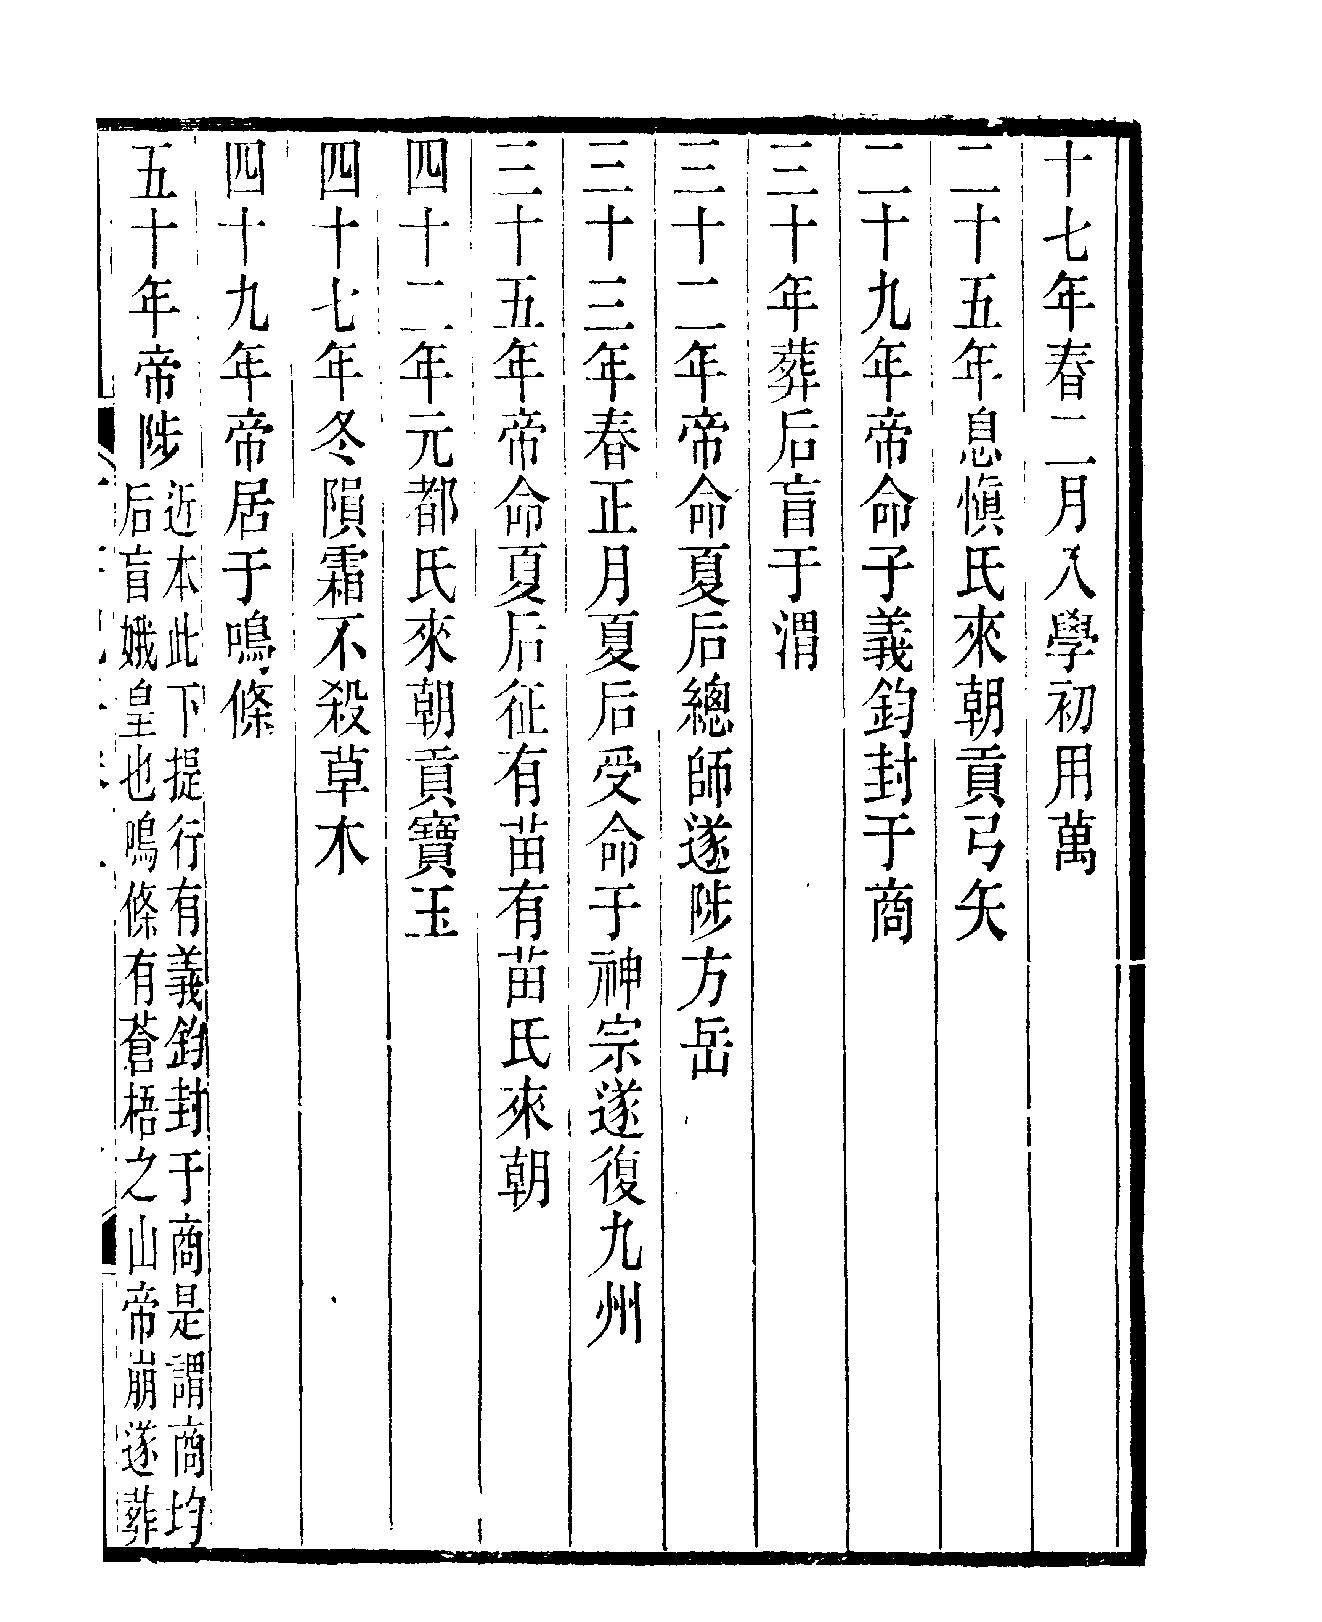 十七年春二月入學初用萬
二十五年息愼氏來朝貢弓矢
二十九年帝命子義鈞封于商
三十年葬后盲于渭
三十二年帝命夏后總師遂陟方岳
三十三年春正月夏后受命于神宗遂復九州
三十五年帝命夏后征有苗有苗氏來朝
四十二年元都氏來朝貢寶玉
四十七年冬隕霜不殺草木
四十九年帝居于鳴條
五十年帝陟
近本此下提行有義鈞封于商是謂商均
后盲娥皇也鳴條有蒼梧之山帝崩遂葬